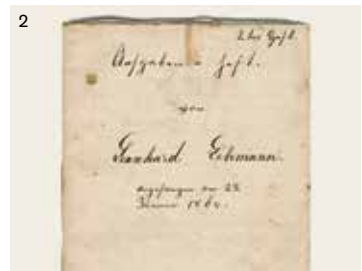 2
2tes Heft.
Aufgaben Heft.
von
Leonhard Lehmann.
angefangen am 22
Januar 186